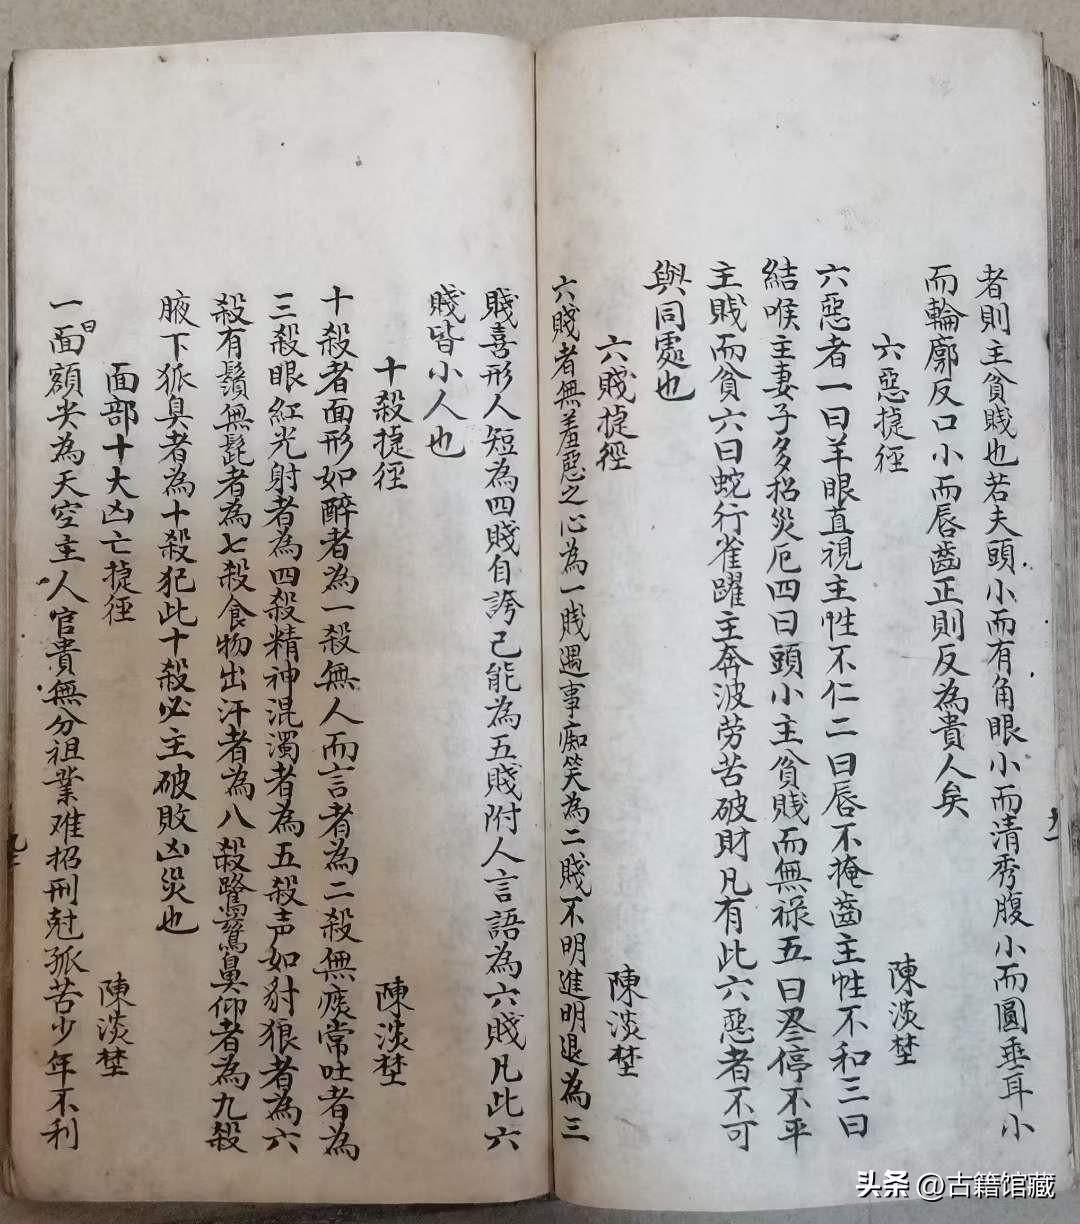 者則主貧賤也若夫頭小而有角眼小而清秀腹小而圓垂耳小
而輪廓反口小而唇齒正則反為貴人矣
六惡捷徑 陳淡埜
六惡者一曰羊眼直視主性不仁二曰唇不掩齒主性不和三曰
結喉主妻子多招災厄四曰頭小主貧賤而無祿五曰三停不平
主賎而貧六曰蛇行雀躍主奔波劳苦破財凡有此六惡者不可
與同處也
六賤捷徑 陳淡埜
六賤者無羞惡之心為一賎遇事痴笑為二賤不明進明退為三
賤喜形人短為四賤自誇己能為五賤附人言語為六賤凡此六
賤皆小人也
十殺捷徑 陳淡埜
十殺者面形如醉者為一殺無人而言者為二殺無痰常吐者為
三殺眼紅光射者為四殺精神混濁者為五殺声如豺狼者為六
殺有鬚無髭者為七殺食物出汗者為八殺鷺鷥鼻仰者為九殺
腋下狐臭者為十殺犯此十殺必主破敗凶災也
面部十大凶亡捷徑 陳淡埜
一曰面額尖為天空主人官貴無分祖業难招刑尅孤苦少年不利
九一
九二
头条 @古籍馆藏